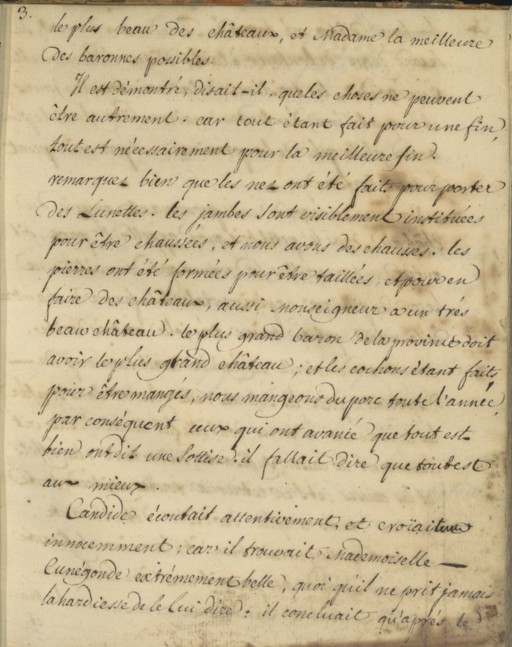 3.
le plus beau des châteaux, et Madame la meilleure
des baronnes possibles.
Il est démontré, disait-il, que les choses ne peuvent
être autrement. car tout étant fait pour une fin,
tout est nécessairement pour la meilleure fin.
remarquez bien que les nez ont été faits pour porter
des Lunettes. les jambes sont visiblement instituées
pour être chaussées, et nous avons des chausses. les
pierres ont été formées pour être taillées, et pour en
faire des châteaux, aussi monseigneur a un trés
beau château. le plus grand baron de la province doit
avoir le plus grand château ; et les cochons étant faits
pour être mangés, nous mangeons du porc toute l'année,
par conséquent ceux qui ont avancé que tout est
bien ont dit une Sottise. il fallait dire que tout est
au mieux.
Candide écoutait attentivement, et croïait
innocemment ; car il trouvait Mademoiselle
Cunégonde extrémement belle, quoi qu'il ne prit jamais
la hardiesse de le lui dire. il concluait qu'aprés le